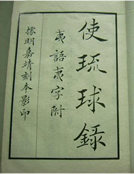 使琉球錄
夷語夷字附
據明嘉靖刻本影印